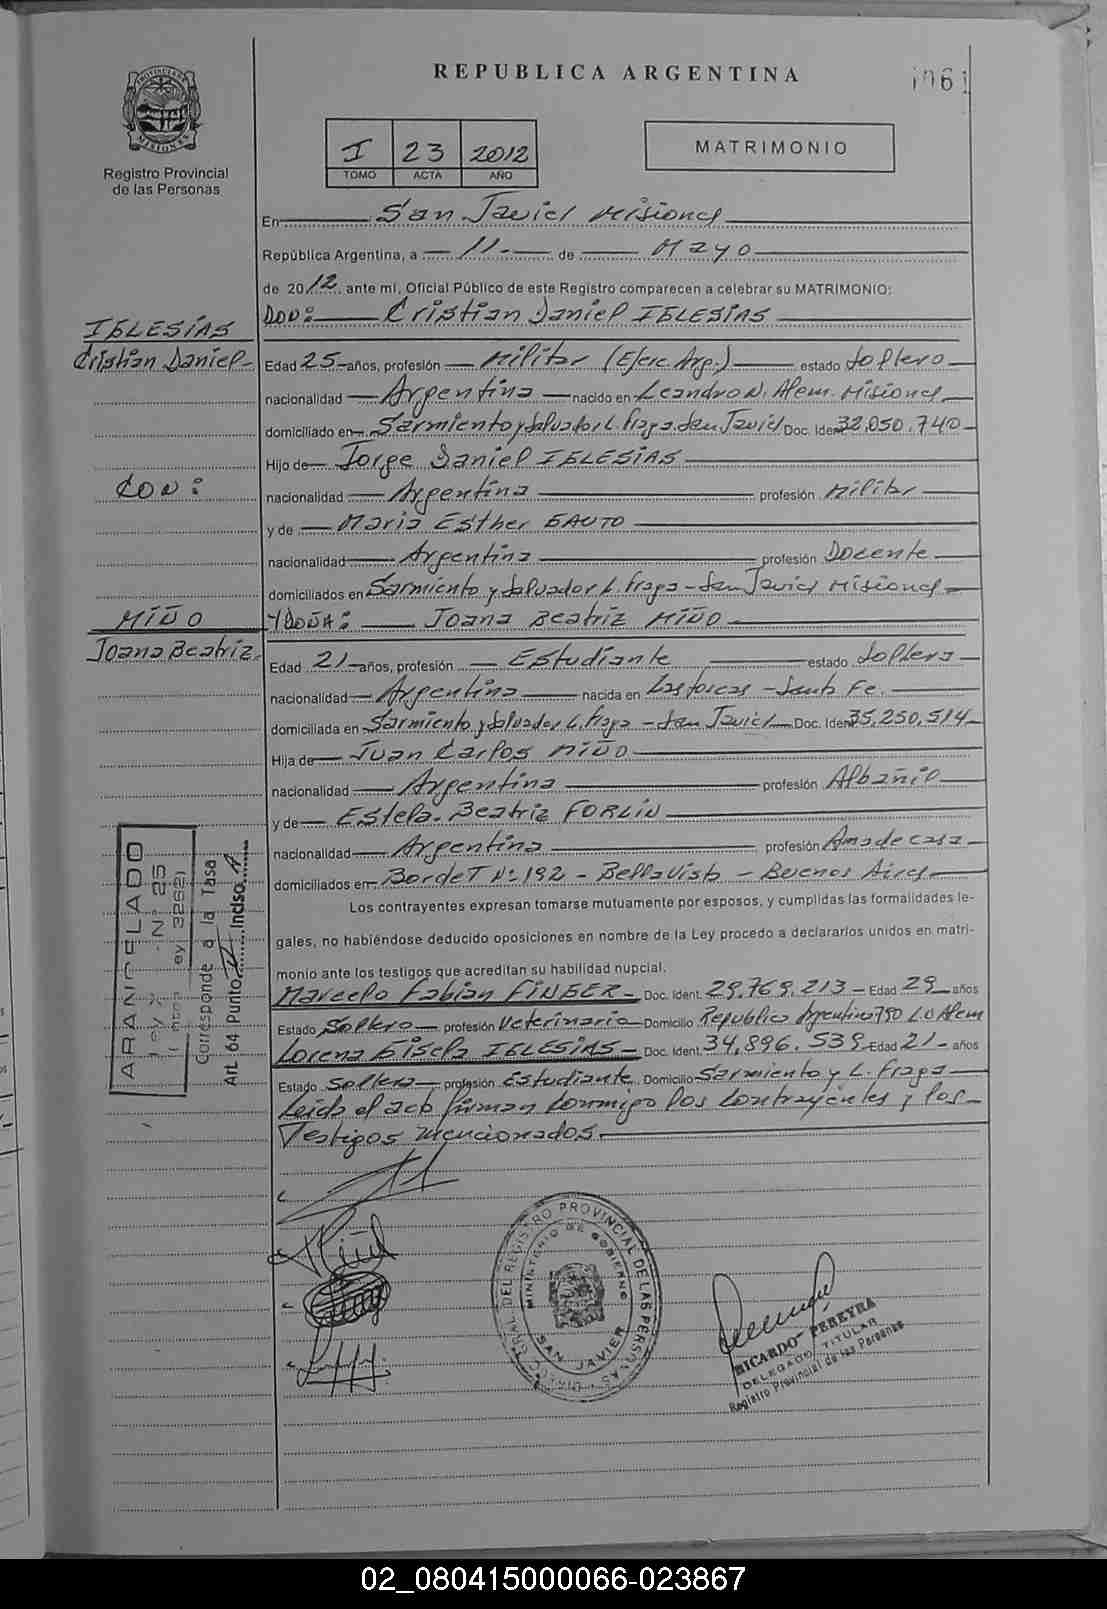 REPUBLICA ARGENTINA
1061
PROVINCIA DE MISIONES
Registro Provincial
de las Personas
I 23 2012
TOMO ACTA AÑO
MATRIMONIO
En San Javier Misiones
República Argentina, a 11 de Mayo
de 2012, ante mí, Oficial Público de este Registro comparecen a celebrar su MATRIMONIO:
DON: Cristian Daniel IGLESIAS
IGLESIAS
Cristian Daniel
Edad 25 años, profesión Militar (Ejerc. Arg.) estado Soltero
nacionalidad Argentina nacido en Leandro N. Alem. Misiones
domiciliado en Sarmiento y Salvador L. Fraga. San Javier Doc. Ident. 32.050.740
Hijo de Jorge Daniel IGLESIAS
CON:
nacionalidad Argentina profesión Militar
y de Maria Esther GAUTO
nacionalidad Argentina profesión Docente
domiciliados en Sarmiento y Salvador L. Fraga - San Javier Misiones
MIÑO
Joana Beatriz
Y DOÑA: Joana Beatriz MIÑO
Edad 21 años, profesión Estudiante estado Soltera
nacionalidad Argentina nacida en Las Toscas - Santa Fe.
domiciliada en Sarmiento y Salvador L. Fraga - San Javier Doc. Ident. 35.250.514
Hija de Juan Carlos MIÑO
nacionalidad Argentina profesión Albañil
y de Estela Beatriz FORLIN
nacionalidad Argentina profesión Ama de casa
domiciliados en Bordet Nº 192 - Bella Vista - Buenos Aires
Los contrayentes expresan tomarse mutuamente por esposos, y cumplidas las formalidades le-
gales, no habiéndose deducido oposiciones en nombre de la Ley procedo a declararlos unidos en matri-
monio ante los testigos que acreditan su habilidad nupcial.
Marcelo Fabian FINGER Doc. Ident. 29.769.213 Edad 29 años
Estado Soltero profesión Veterinario Domicilio Republica Argentina 750 L.N. Alem
Lorena Gisela IGLESIAS Doc. Ident. 34.896.539 Edad 21 años
Estado Soltera profesión Estudiante Domicilio Sarmiento y L. Fraga
Leida el acta firman conmigo los contrayentes y los
Testigos mencionados.
ARANCELADO
Nº 25
ey 3262
Corresponde a la Tasa
Art. 64 Punto Inciso A
DEL REGISTRO PROVINCIAL DE LAS PERSONAS
MINISTERIO DE GOBIERNO
SAN JAVIER
RICARDO PEREYRA
DELEGADO TITULAR
Registro Provincial de las Personas
02_080415000066-023867